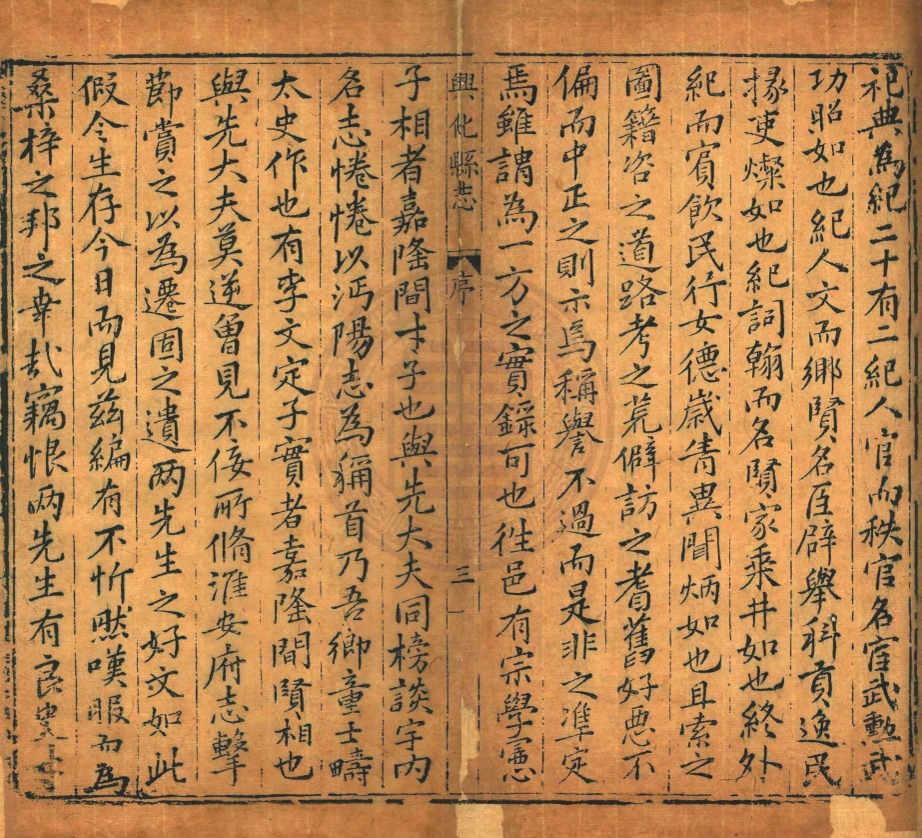 祀典為紀二十有二紀人官而秩官名宦武勲武
功昭如也紀人文而鄉賢名臣辟舉科貢逸民
掾吏燦如也紀詞翰而名賢家乗井如也終外
紀而賓飲民行女德歲眚異聞炳如也且索之
圖籍咨之道路考之荒僻訪之耆舊好惡不
偏而中正之則示焉稱譽不過而是非之準定
焉雖謂為一方之實錄可也徃邑有宗學憲
興化縣志 序 三
子相者嘉隆間才子也與先大夫同榜談宇內
名志惓惓以沔陽志為稱首乃吾鄉童士疇
太史作也有李文定子實者嘉隆間賢相也
與先大夫莫逆曾見不佞所脩淮安府志擊
節賞之以為遷固之遺兩先生之好文如此
假令生存今日而見茲編有不忻然嘆服而為
桑梓之邦之幸哉竊恨兩先生有良史